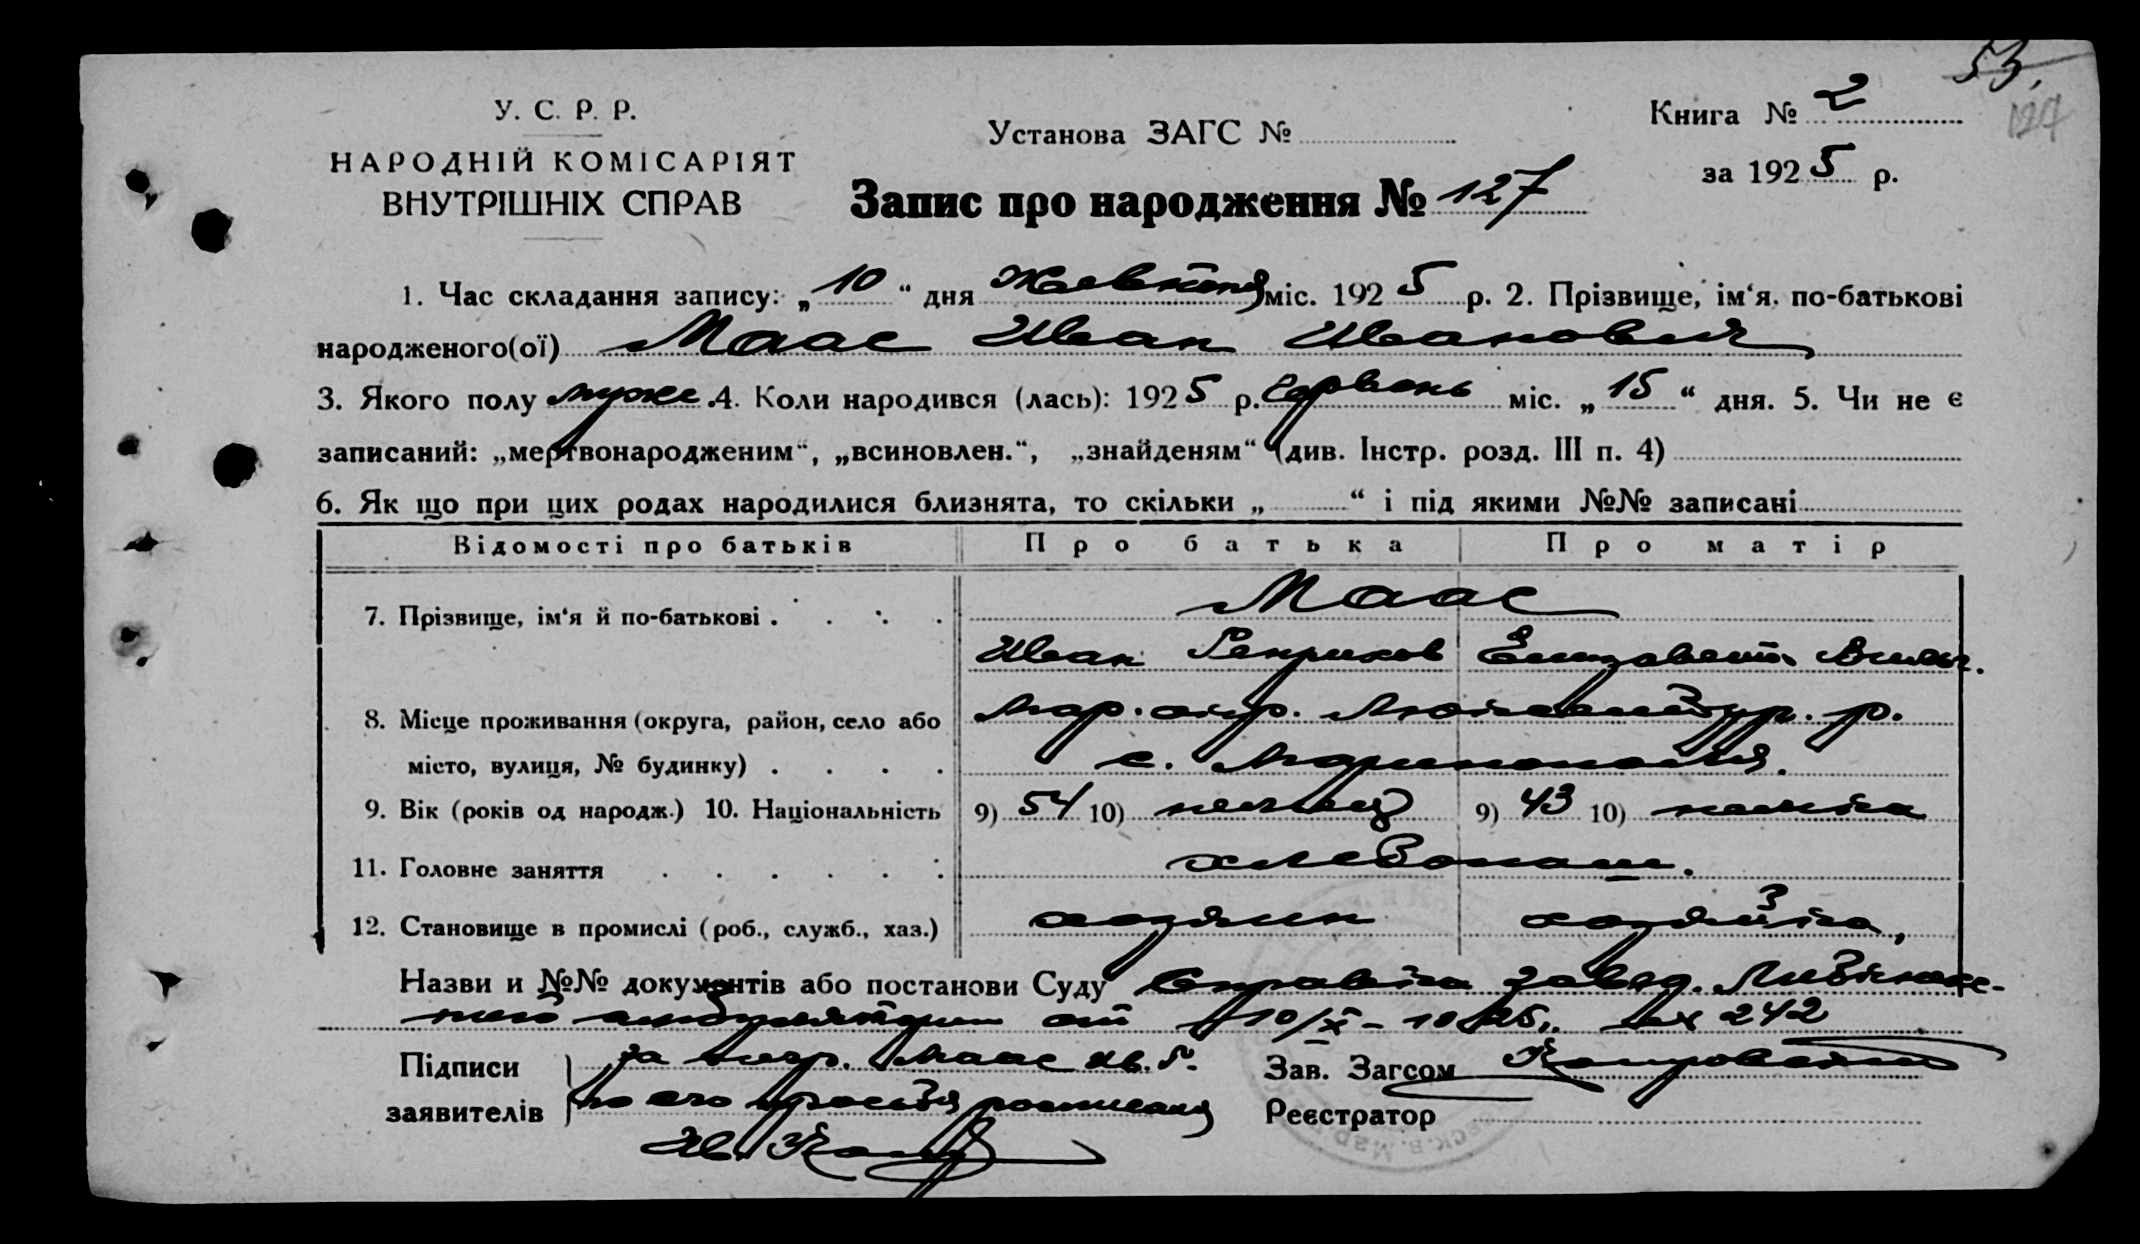 53.
124
У. С. Р. Р.
НАРОДНІЙ КОМІСАРІЯТ
ВНУТРІШНІХ СПРАВ
Установа ЗАГС №
Книга № 2
за 1925 р.
Запис про народження № 127
1. Час складання запису: „10“ дня Жовтня міс. 1925 р. 2. Прізвище, ім‘я, по-батькові
народженого(ої) Маас Иван Иванович
3. Якого полу муже. 4. Коли народився (лась): 1925 р. Червень міс. „15“ дня. 5. Чи не є
записаний: „мертвонародженим“, „всиновлен.“, „знайденям“ (див. Інстр. розд. III п. 4)
6. Як що при цих родах народилися близнята, то скільки „ “ і під якими №№ записані
Відомості про батьків Про батька Про матір
7. Прізвище, ім‘я й по-батькові Маас
Иван Генрихов Елизавета
8. Місце проживання (округа, район, село або Мар. окр. р.
місто, вулиця, № будинку) с.
9. Вік (років од народж.) 10. Національність 9) 54 10) немець 9) 43 10) немкіня
11. Головне заняття хлебопаш.
12. Становище в промислі (роб., служб., хаз.) хозяин хозяйка,
Назви и №№ документів або постанови Суду Справка завед.
амбулятории от 10/X - 1925 г. № 242
Підписи за негр. Маас Ив. Г.
заявителів по его просьбе росписался
Ив.
Зав. Загсом
Реєстратор